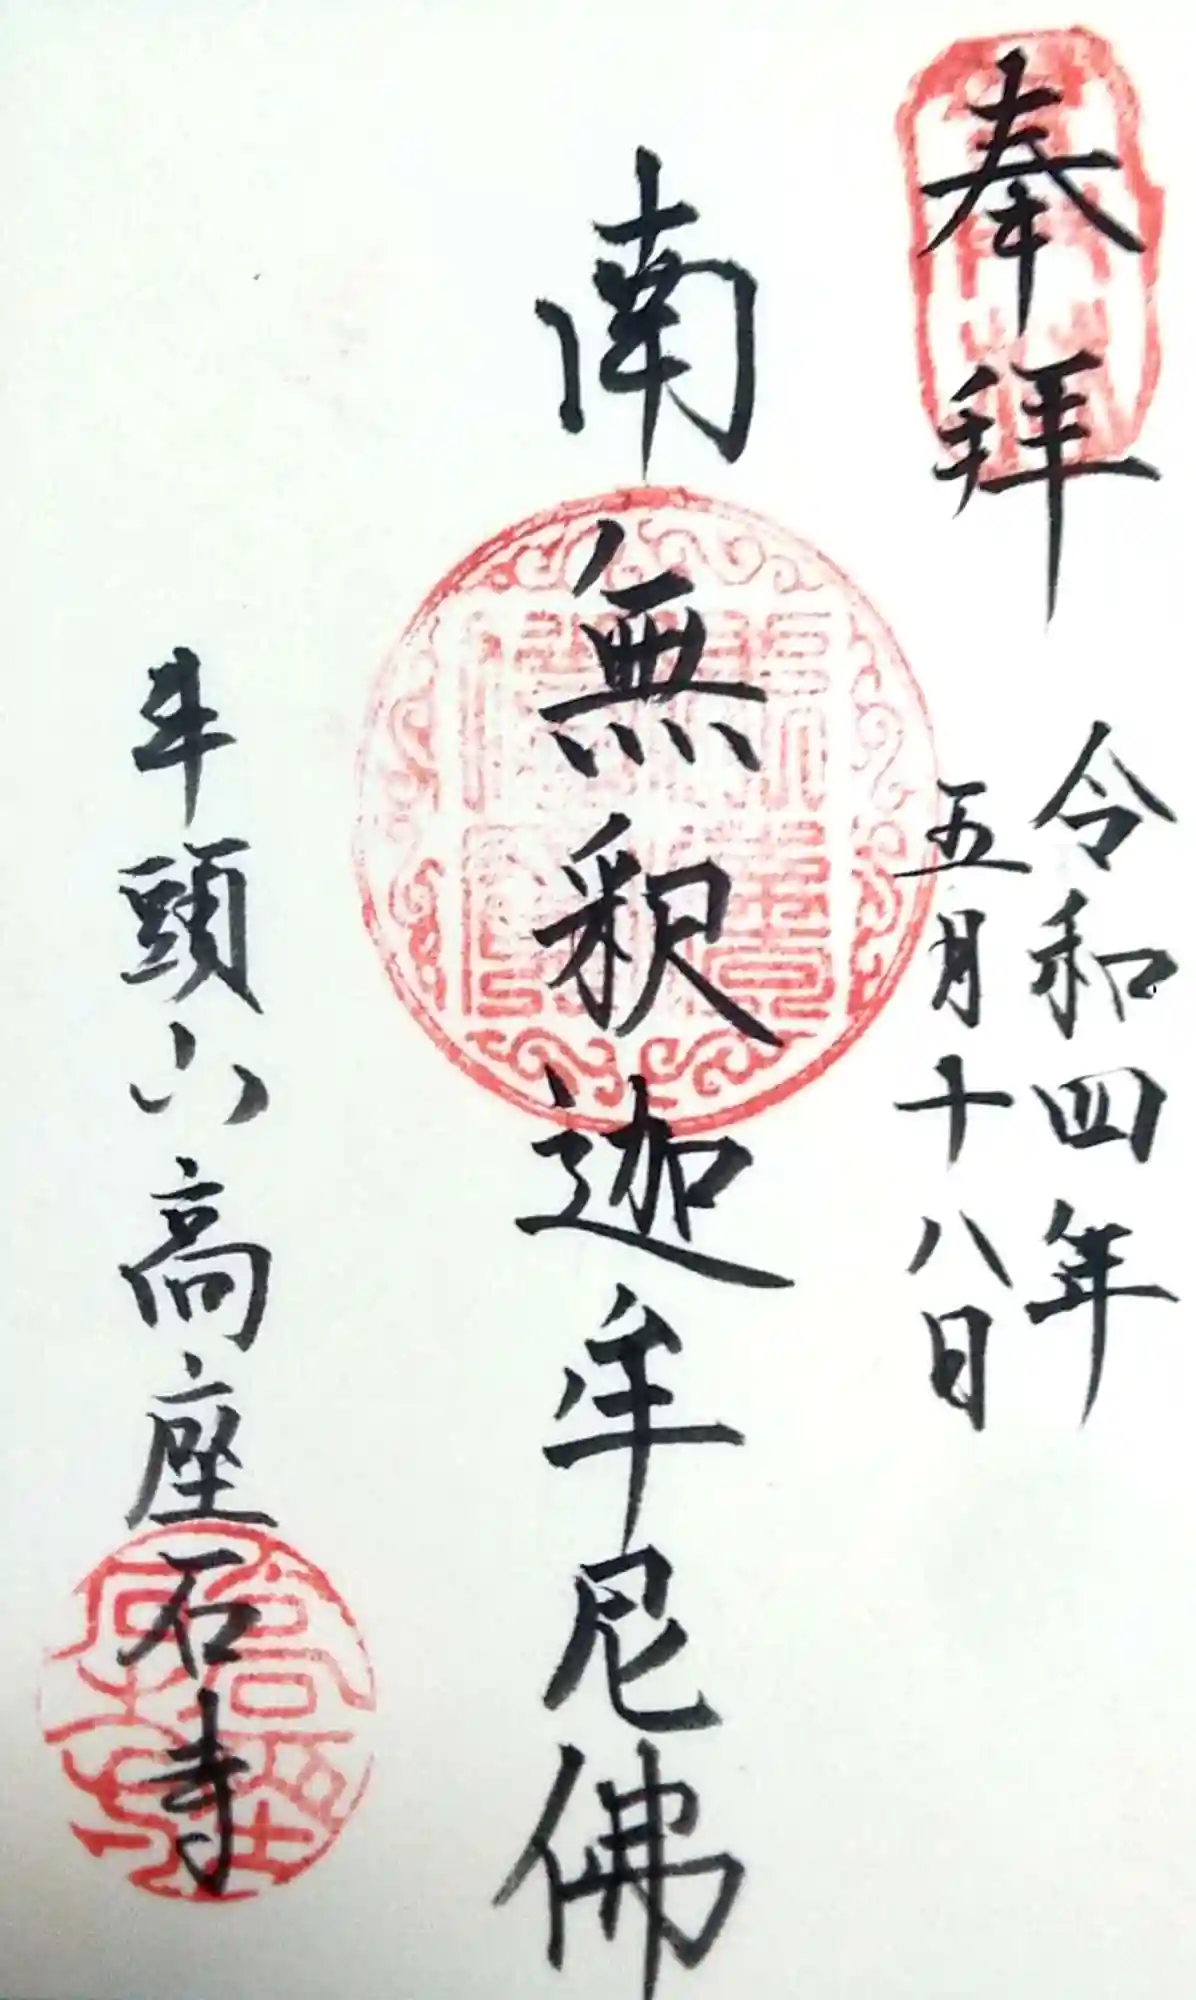 奉拜
令和四年
五月十八日
南無釈迦牟尼佛
半頭山高座石寺